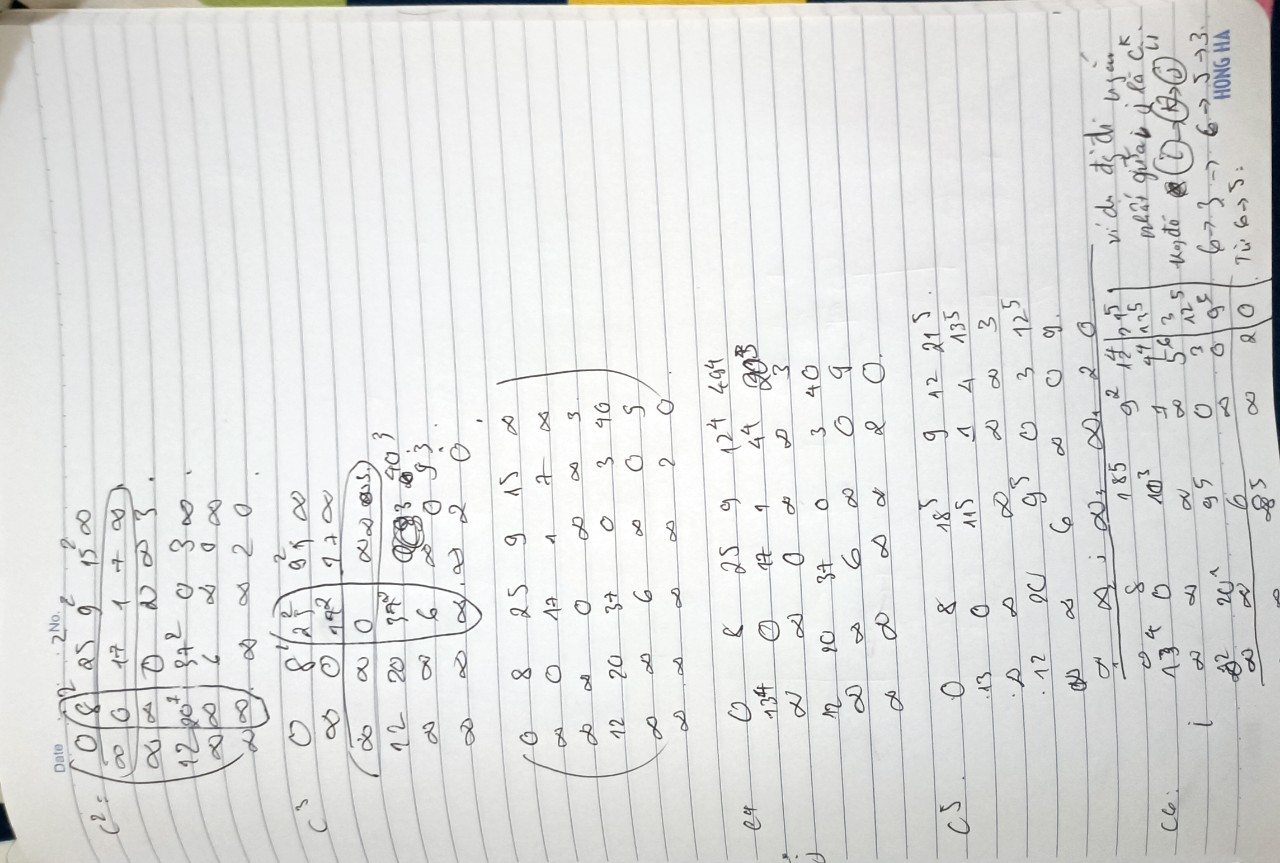 Date No.
C² = 0 8² 25² 9² 15² ∞
∞ 0 17 1 7 ∞
∞ ∞ 0 ∞ ∞ 3
12 20¹ 37² 0 3 ∞
∞ ∞ 6 ∞ 0 ∞
∞ ∞ ∞ ∞ 2 0
C³ 0 8¹ 25² 9² 15 ∞
∞ 0 17² 1 7 ∞
∞ ∞ 0 ∞ ∞ 3
12 20 37² 3 40³
∞ ∞ 6 ∞ 0 9³
∞ ∞ ∞ ∞ 2 0
0 8 25 9 15 ∞
∞ 0 17 1 7 ∞
∞ ∞ 0 ∞ ∞ 3
12 20 37 0 3 40
∞ ∞ 6 ∞ 0 9
∞ ∞ ∞ ∞ 2 0
C4 0 8 25 9 12⁴ 49⁴
13⁴ 0 17 1 4⁴
∞ ∞ 0 ∞ ∞ 3
12 20 37 0 3 40
∞ ∞ 6 ∞ 0 9
∞ ∞ ∞ ∞ 2 0
C5 0 8 18⁵ 9 12 21⁵
13 0 11⁵ 1 4 13⁵
∞ ∞ ∞ ∞ ∞ 3
12 20 9⁵ 0 3 12⁵
∞ ∞ 6 ∞ 0 9
∞ ∞ ∞ ∞ 2 0
8 18⁵ 9² 12⁴ 21⁵
C6: 13⁴ 0 1 4⁴ 13⁵
i ∞ ∞ ∞ ∞ 5⁶ 3
12 20¹ 9⁵ 0 3 12⁵
∞ ∞ 6 ∞ 0 9⁵
∞ 8⁵ ∞ 2 0
ví dụ đg đi ngắn
nhất giữa i, j là Cᵏij
khi đó i → k → j
6 → 3 → 6 → 5 → 3
Từ 6 → 5:
HONG HA